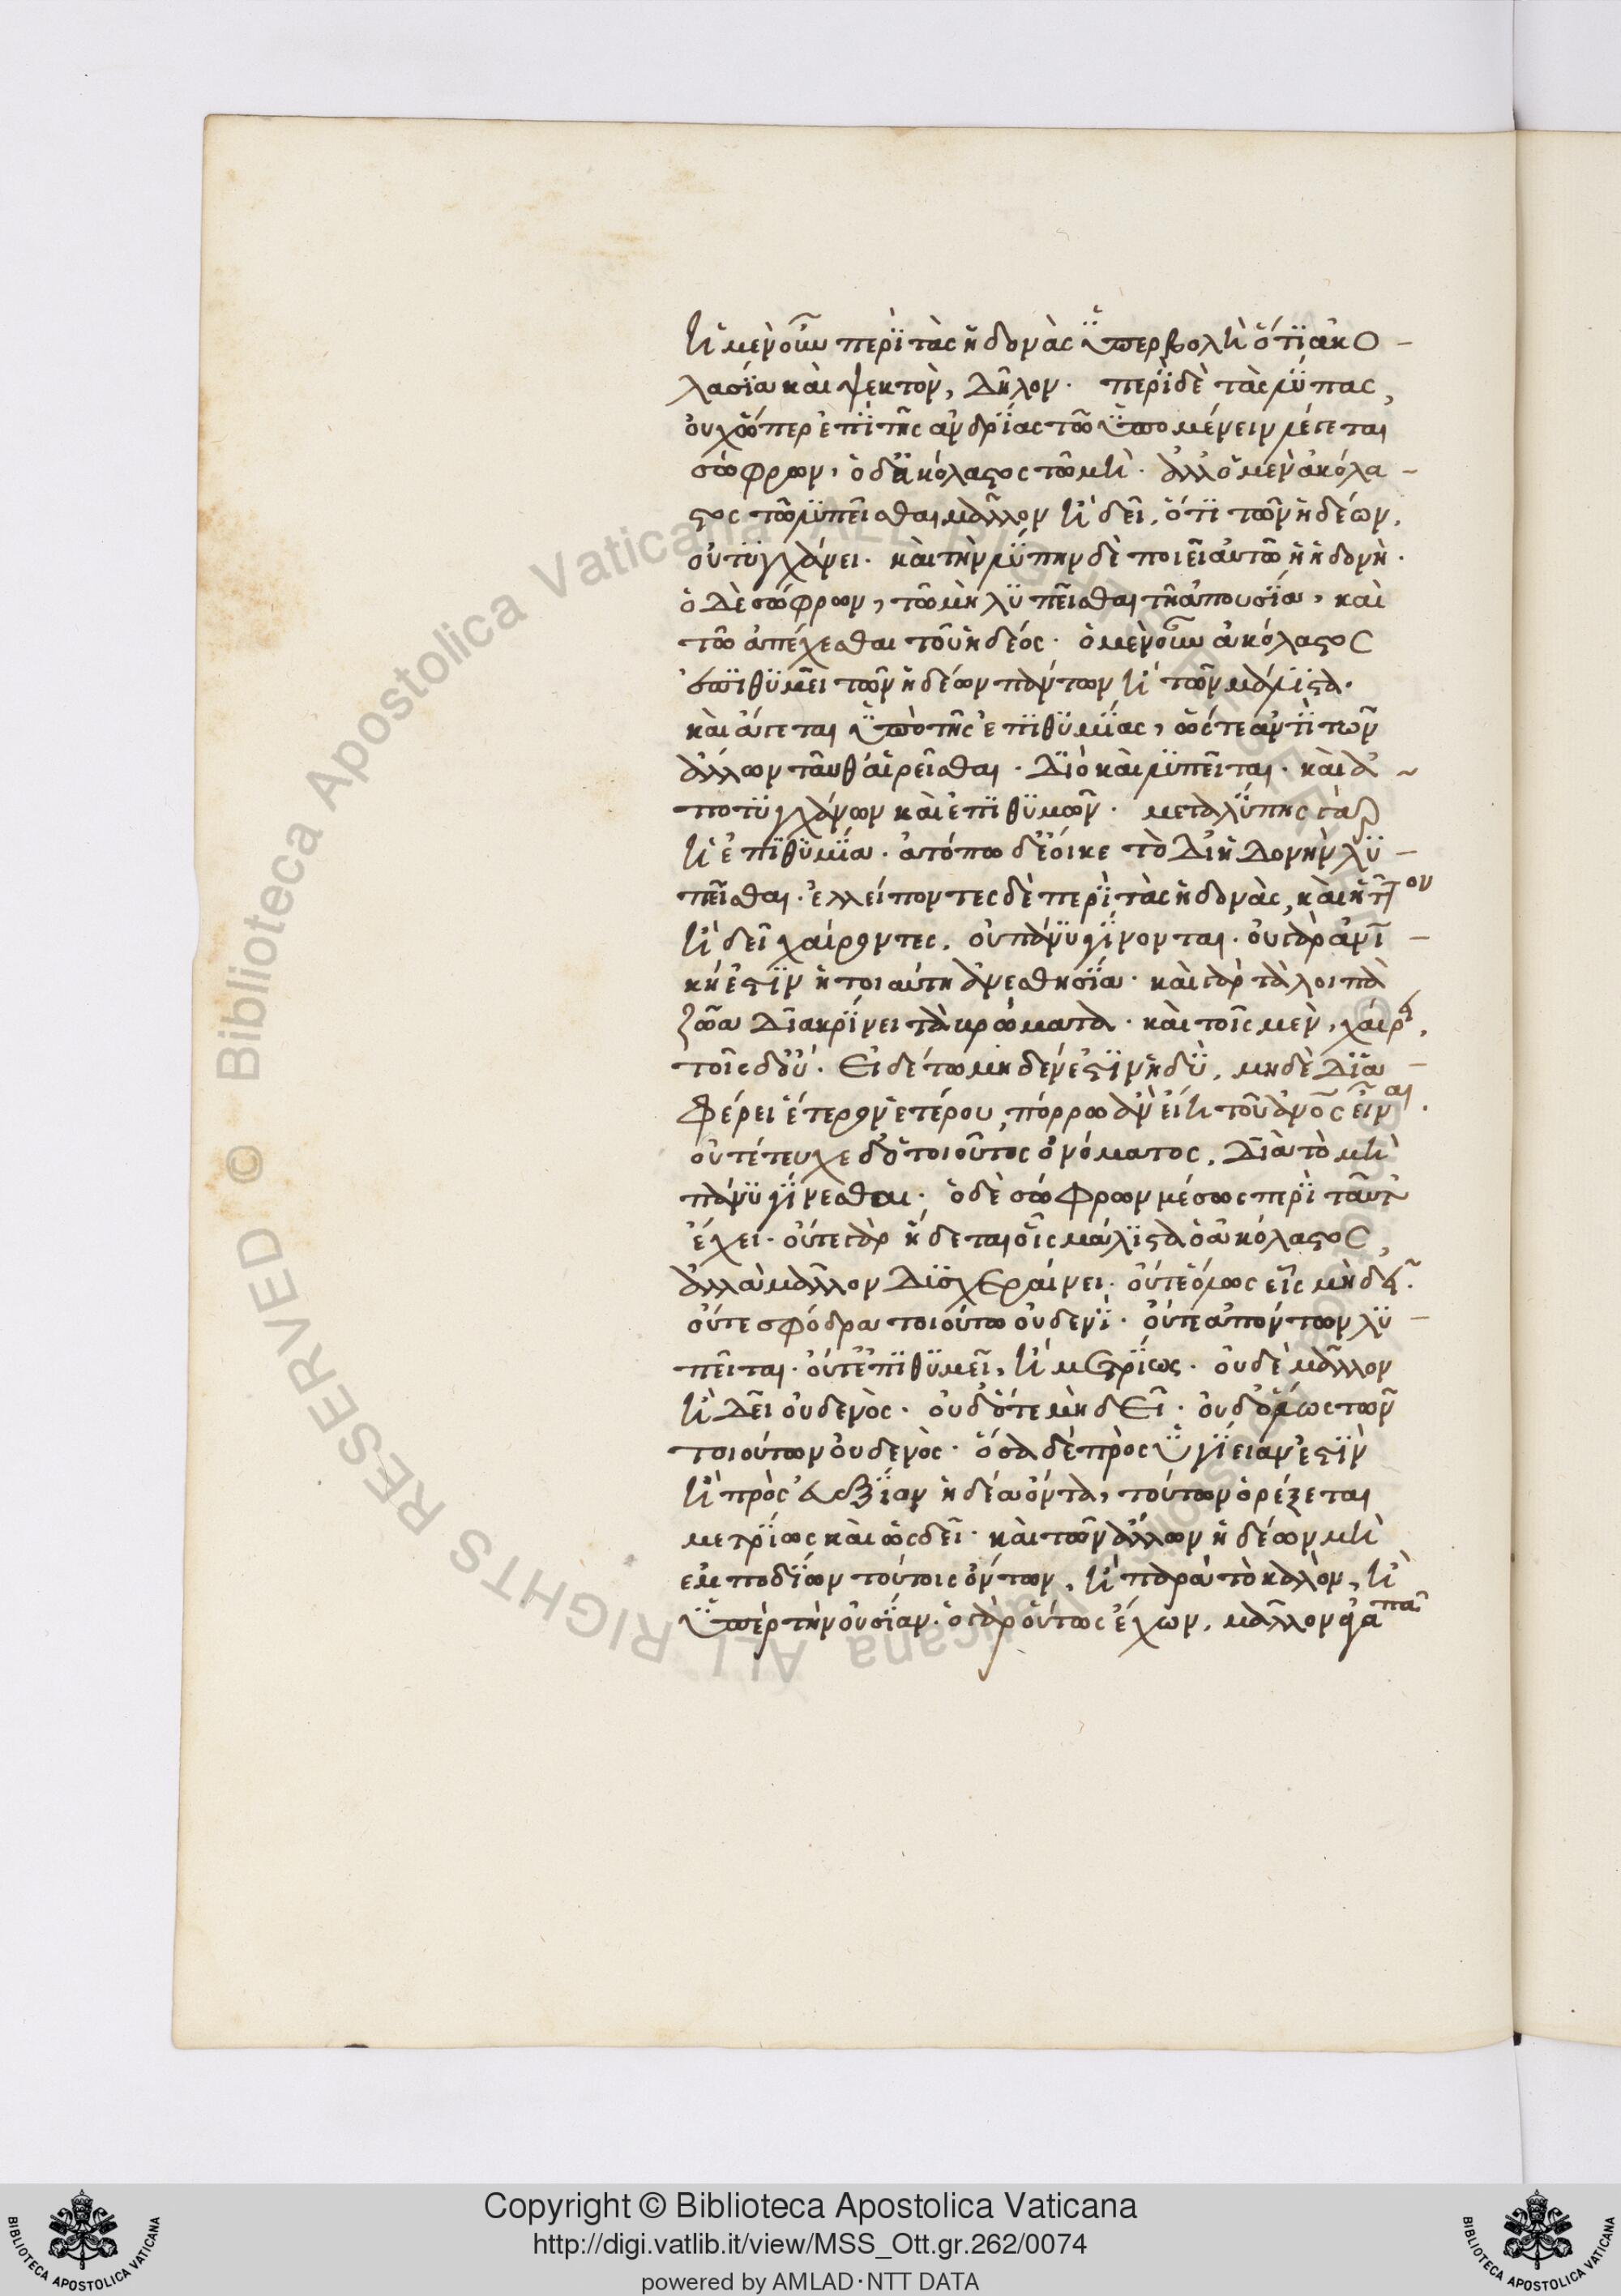 ἡ μὲν οὖν περὶ τὰς ἡδονὰς ὑπερβολὴ ὅτι ἀκο-
λασία καὶ ψεκτὸν, δῆλον. περὶ δὲ τὰς λύπας,
οὐχ ὥσπερ ἐπὶ τῆς ἀνδρίας τῶ ὑπομένειν λέγεται
σώφρων, ὁ δ' ἀκόλαστος τῶ μὴ. ἀλλ' ὁ μὲν ἀκόλα-
στος τῶ λυπεῖσθαι μᾶλλον ἢ δεῖ, ὅτι τῶν ἡδέων,
οὐ τυγχάνει. καὶ τὴν λύπην δὲ ποιεῖ αὐτῶ ἡ ἡδονή.
ὁ δὲ σώφρων, τῶ μὴ λυπεῖσθαι τῆ ἀπουσία, καὶ
τῶ ἀπέχεσθαι τοῦ ἡδέος. ὁ μὲν οὖν ἀκόλαστος
ἐπιθυμεῖ τῶν ἡδέων πάντων ἢ τῶν μάλιστα.
καὶ ἄγεται ὑπὸ τῆς ἐπιθυμίας, ὥστε ἀντὶ τῶν
ἄλλων ταῦθ' αἱρεῖσθαι. διὸ καὶ λυπεῖται. καὶ ἀ-
ποτυγχάνων καὶ ἐπιθυμῶν. μετὰ λύπης γὰρ
ἡ ἐπιθυμία. ἀτόπω δ' ἔοικε τὸ δι' ἡδονὴν λυ-
πεῖσθαι. ἐλλείποντες δὲ περὶ τὰς ἡδονὰς, καὶ ἧττον
ἢ δεῖ χαίροντες, οὐ πάνυ γίνονται. οὐ γὰρ ἀνθρωπι-
κή ἐστιν ἡ τοιαύτη ἀναισθησία. καὶ γὰρ τὰ λοιπὰ
ζῶα διακρίνει τὰ βρώματα. καὶ τοῖς μὲν, χαίρει,
τοῖς δ' οὐ. εἰ δέ τω μηδέν ἐστιν ἡδὺ, μηδὲ δια-
φέρει ἕτερον ἑτέρου, πόρρω ἂν εἴη τοῦ ἄνθρωπος εἶναι.
οὐ τέτευχε δ' ὁ τοιοῦτος ὀνόματος, διὰ τὸ μὴ
πάνυ γίνεσθαι. ὁ δὲ σώφρων μέσως περὶ ταῦτ'
ἔχει. οὔτε γὰρ ἥδεται οἷς μάλιστα ὁ ἀκόλαστος,
ἀλλὰ μᾶλλον δυσχεραίνει. οὔτε ὅλως οἷς μὴ δεῖ.
οὔτε σφόδρα τοιούτω οὐδενί. οὔτε ἀπόντων λυ-
πεῖται. οὔτ' ἐπιθυμεῖ, ἢ μετρίως. οὐδὲ μᾶλλον
ἢ δεῖ οὐδενὸς. οὐδ' ὅτε μὴ δεῖ. οὐδ' ὅλως τῶν
τοιούτων οὐδενὸς. ὅσα δὲ πρὸς ὑγίειάν ἐστιν
ἢ πρὸς εὐεξίαν ἡδέα ὄντα, τούτων ὀρέξεται
μετρίως καὶ ὡς δεῖ. καὶ τῶν ἄλλων ἡδέων μὴ
ἐμποδίων τούτοις ὄντων, ἢ παρὰ τὸ καλὸν, ἢ
ὑπὲρ τὴν οὐσίαν. ὁ γὰρ οὕτως ἔχων, μᾶλλον ἀγαπᾶ
Copyright © Biblioteca Apostolica Vaticana
http://digi.vatlib.it/view/MSS_Ott.gr.262/0074
powered by AMLAD·NTT DATA
BIBLIOTECA APOSTOLICA VATICANA
BIBLIOTECA APOSTOLICA VATICANA
© Biblioteca Apostolica Vaticana ALL RIGHTS RESERVED